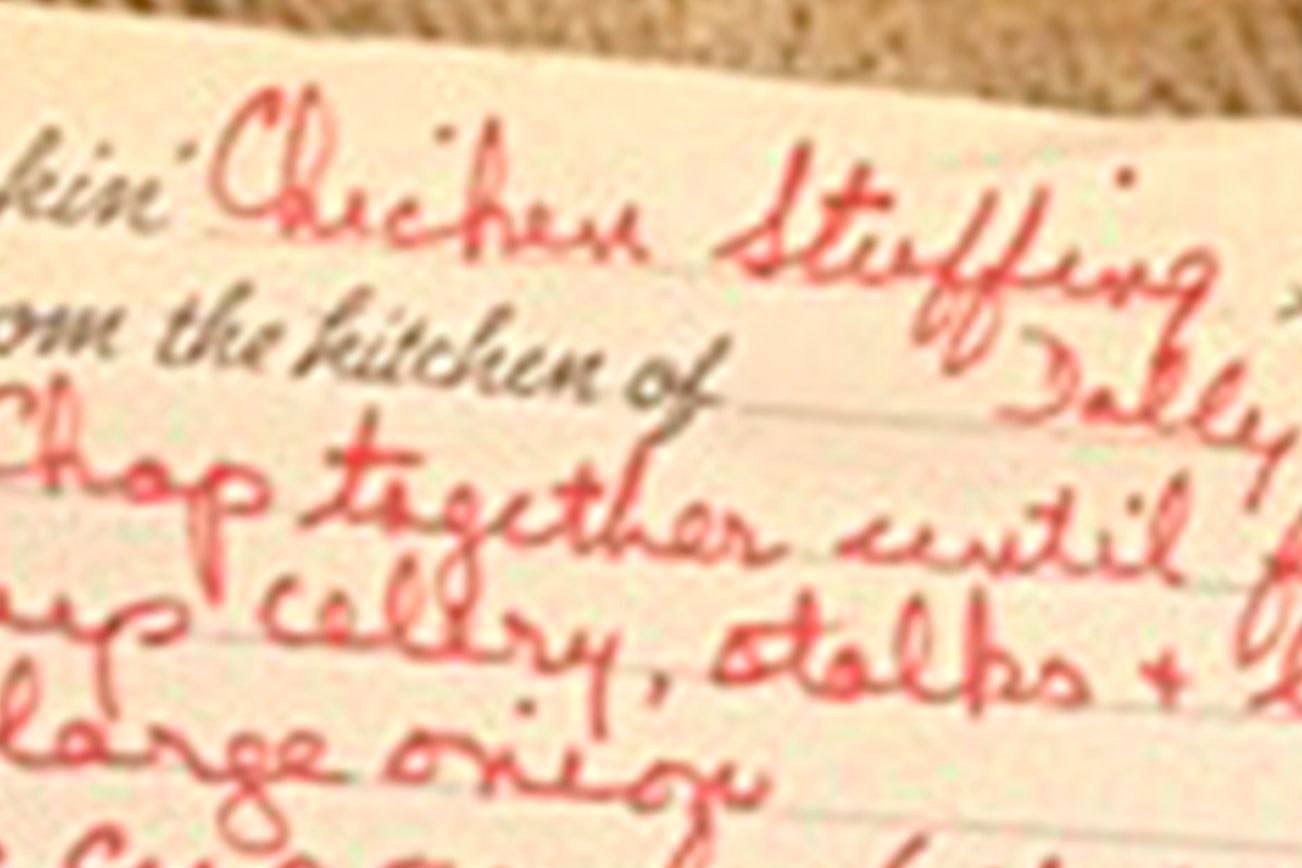 kin' Chicken Stuffing
om the kitchen of Dolly
Chop together until
up celery, stalks +
large onion